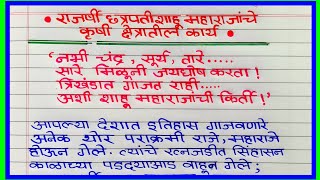 • राजर्षी छत्रपतीशाहू महाराजांचे
कृषी क्षेत्रातील कार्य •
'नभी चंद्र, सूर्य, तारे.....
सारे मिळूनी जयघोष करता !
त्रिखंडात गाजत राही.....
अशी शाहू महाराजांची किर्ती !'
आपल्या देशात इतिहास गाजवणारे
अनेक थोर पराक्रमी राजे, महाराजे
होऊन गेले. त्यांचे रत्नजडीत सिंहासन
काळाच्या पडद्याआड वाहून गेले;